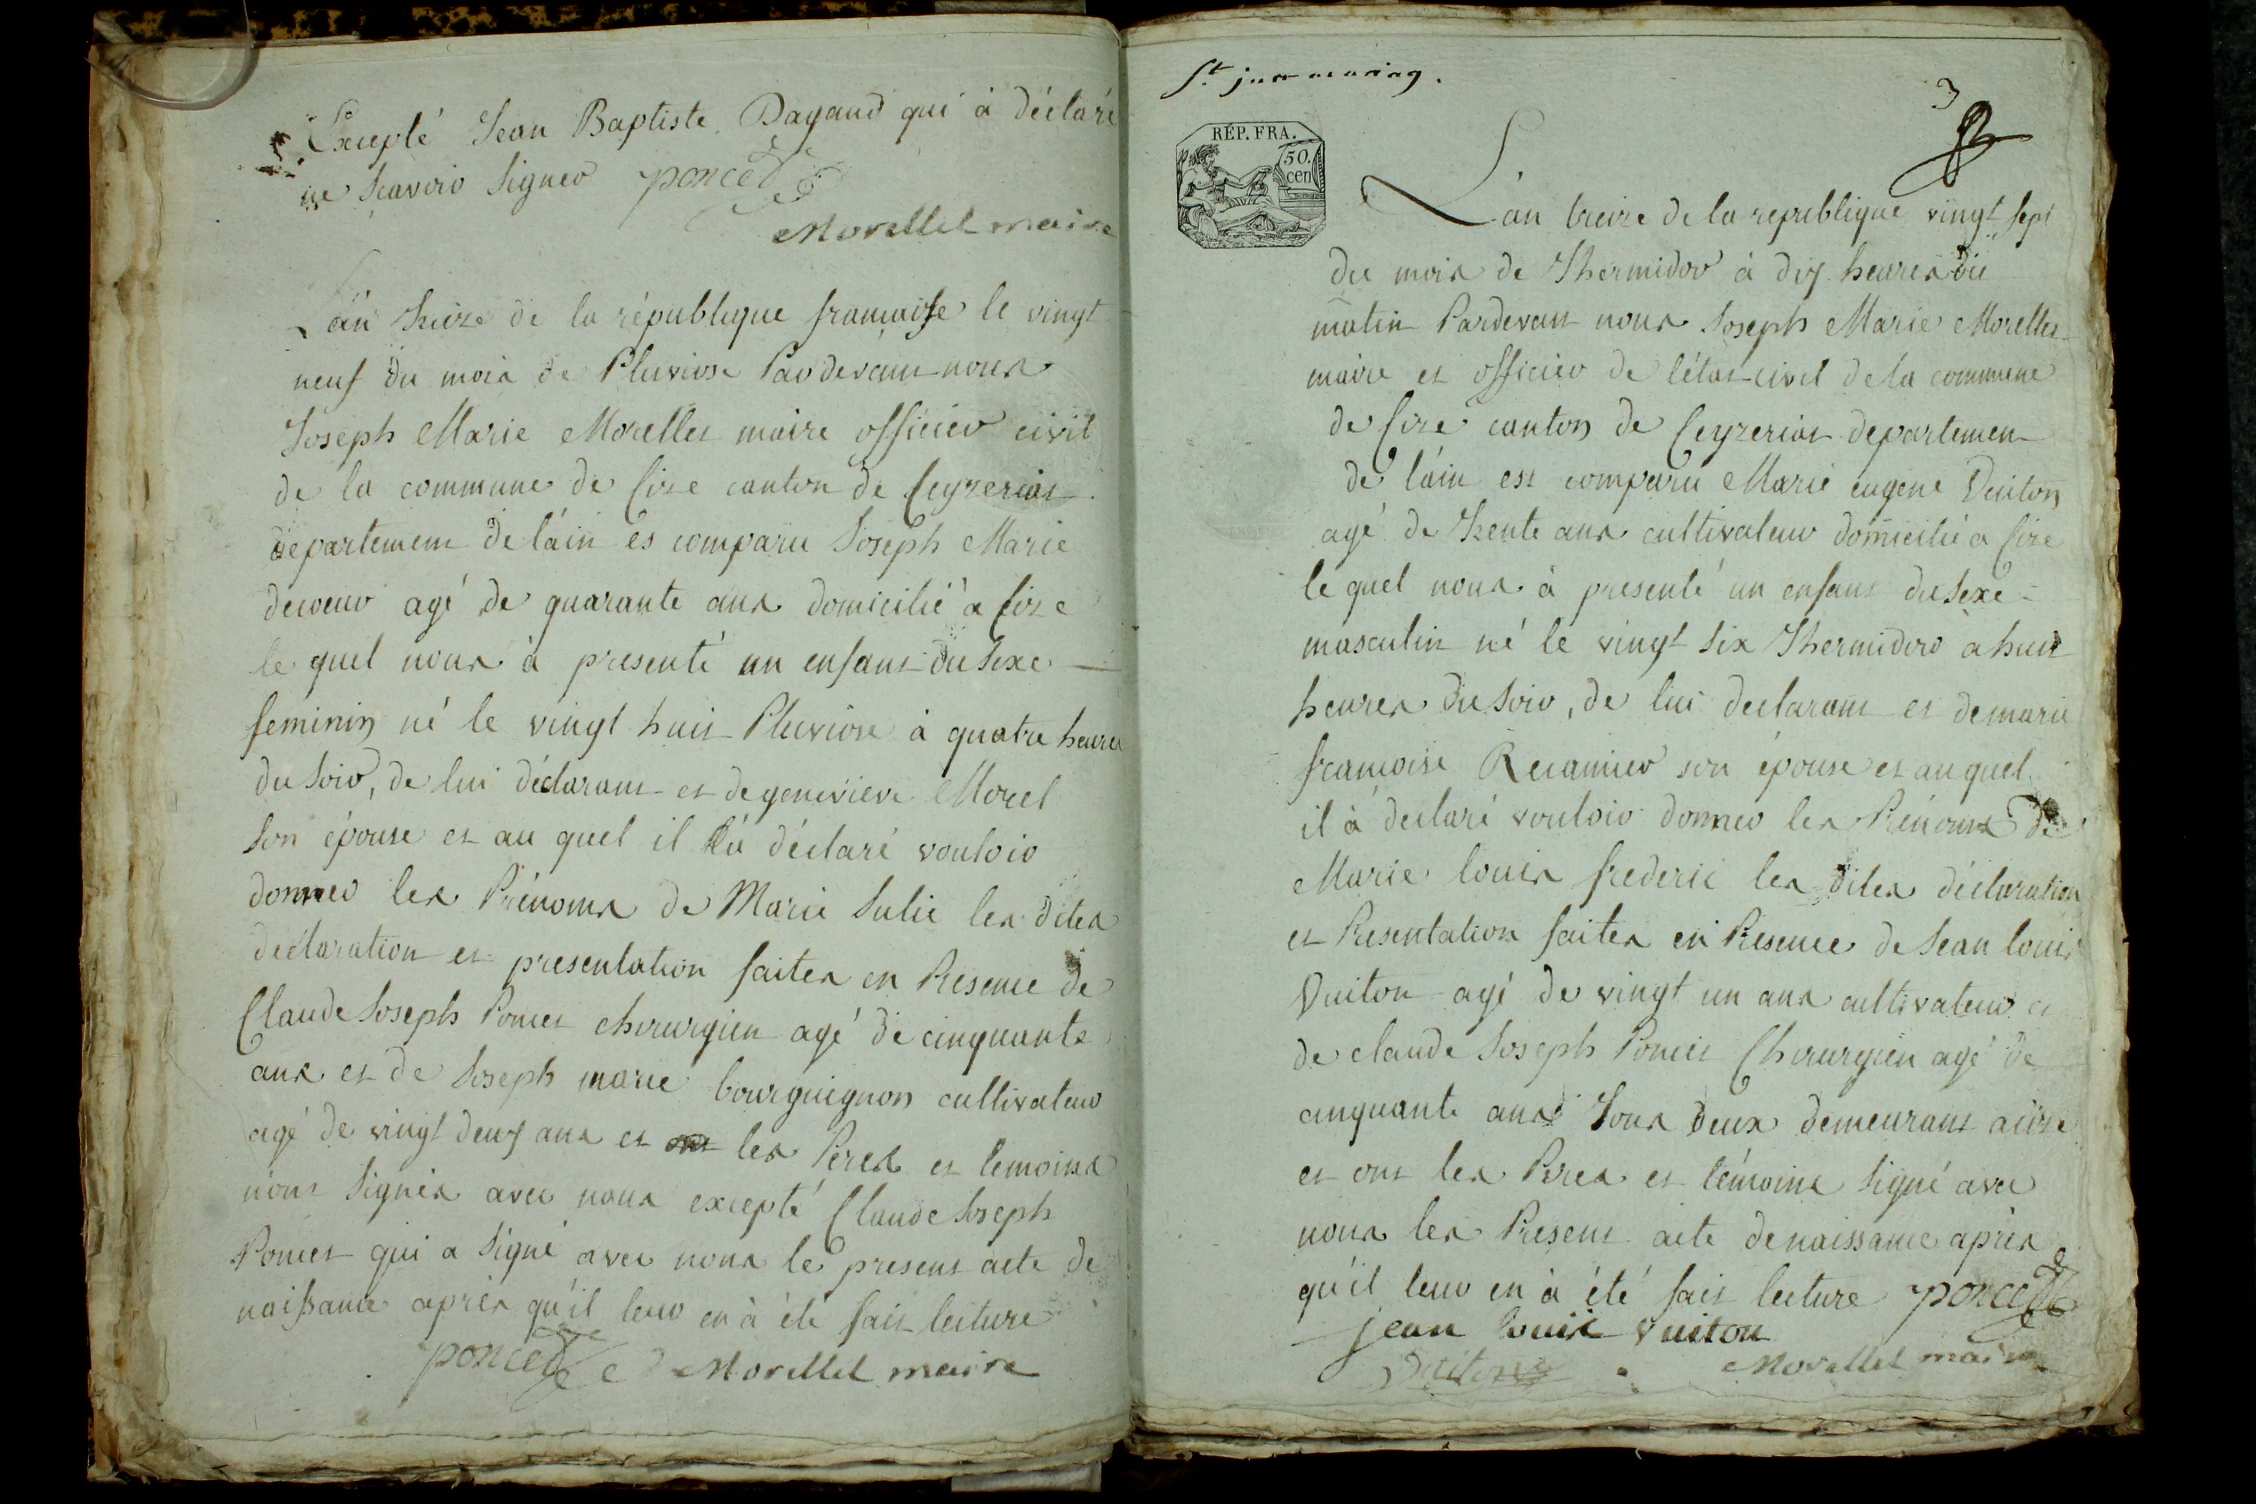 Excepté Jean Baptiste Dagand qui à déclaré
ne Scavoir Signer poncet
Morellet maire
L'an treize de la république française le vingt
neuf du mois de Pluviose Pardevant nous
Joseph Marie Morellet maire officier civil
de la commune de Cize canton de Ceyzeriat
departement de l'ain es comparu Joseph Marie
agé de quarante ans domicilié à Cize
le quel nous à presenté un enfant du Sexe
feminin né le vingt huit Pluviose à quatre heures
du Soir, de lui déclarant et de genevieve Morel
Son épouse et au quel il à déclaré vouloir
donner les Prénoms de Marie Julie les dites
declaration et presentation faites en Presence de
Claude Joseph Poncet chirurgien agé de cinquante
ans et de Joseph marie bourguignon cultivateur
agé de vingt deux ans et les Peres et temoins
n'ont Signés avec nous excepté Claude Joseph
Poncet qui a Signé avec nous le present acte de
naissance après qu'il leur en à été fait lecture
poncet Morellet maire
3
RÉP. FRA.
50.
cen
L'an treize de la republique vingt Sept
du mois de Thermidor à dix heures du
matin Pardevant nous Joseph Marie Morellet
maire et officier de l'état civil de la commune
de Cize canton de Ceyzeriat departement
de l'ain est comparu Marie eugene Vuiton
agé de Trente ans cultivateur domicilié a Cize
le quel nous à presenté un enfant du Sexe
masculin né le vingt Six Thermidor a huit
heures du Soir, de lui declarant et de marie
francoise Recamier son épouse et au quel
il à declaré vouloir donner les Prénoms de
Marie louis frederic les dites déclaration
et Presentation faites en Presence de Jean louis
Vuiton agé de vingt un ans cultivateur et
de claude Joseph Poncet Chirurgien agé de
cinquante ans Tous deux demeurant a Cize
et ont les Peres et témoins Signé avec
nous les Present acte de naissance après
qu'il leur en à été fait lecture poncet
jean louis vuiton
Vuiton Morellet maire